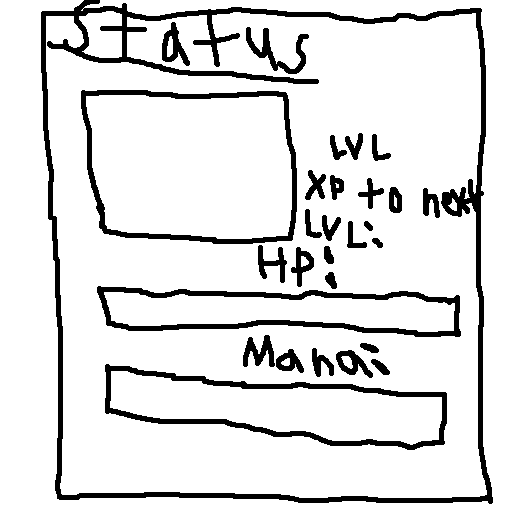 Status
LVL
XP to next
LVL:
HP:
Mana: